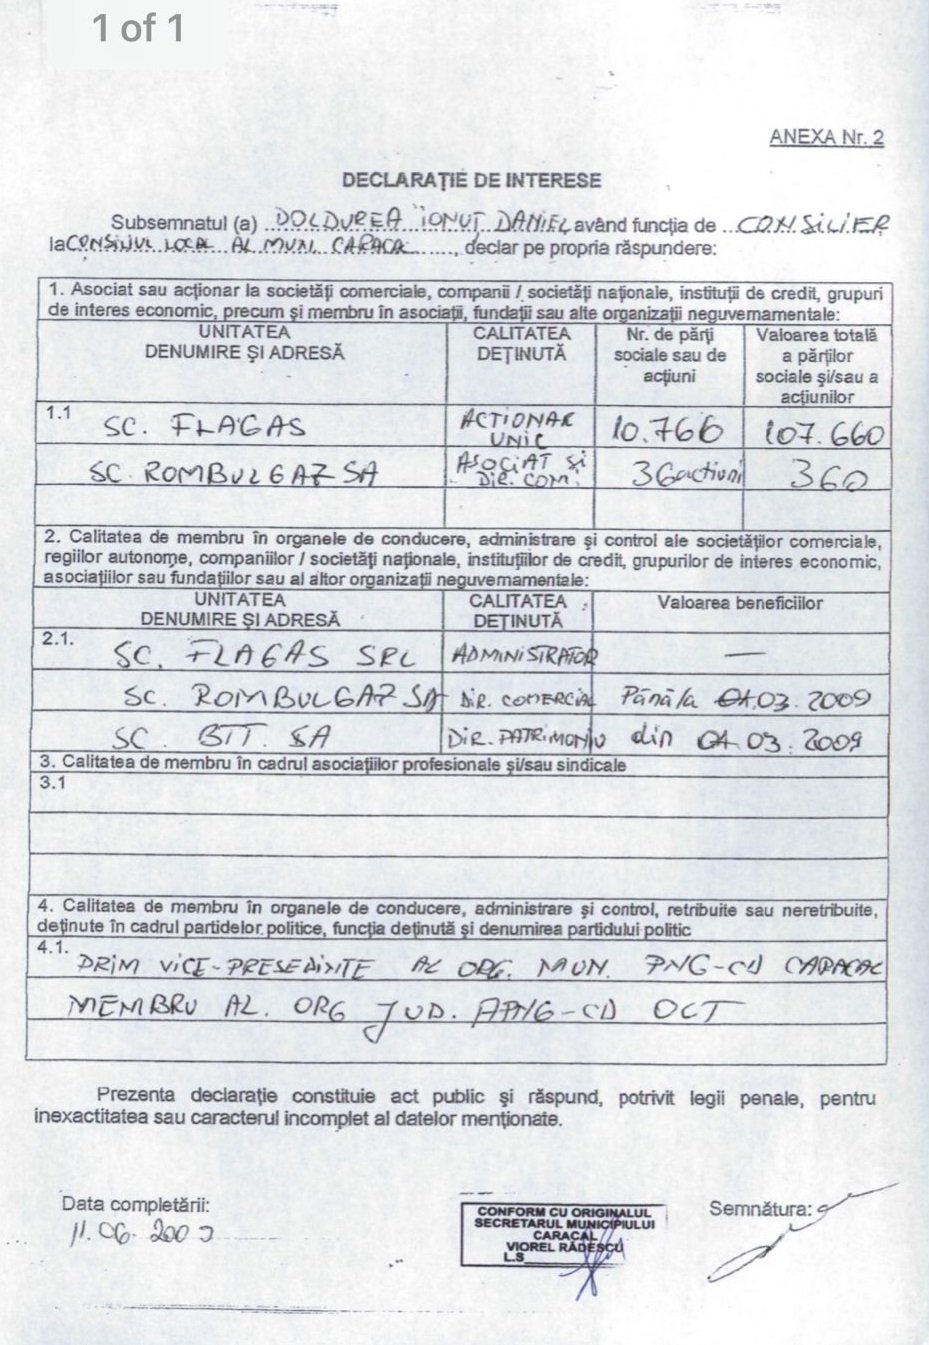 1 of 1
ANEXA Nr. 2
DECLARAŢIE DE INTERESE
Subsemnatul (a) DOLDUREA IONUŢ DANIEL având funcţia de CONSILIER
la CONSILIUL LOCAL AL MUN. CARACAL, declar pe propria răspundere:
1. Asociat sau acţionar la societăţi comerciale, companii / societăţi naţionale, instituţii de credit, grupuri
de interes economic, precum şi membru în asociaţii, fundaţii sau alte organizaţii neguvernamentale:
UNITATEA
DENUMIRE ŞI ADRESĂ
CALITATEA
DEŢINUTĂ
Nr. de părţi
sociale sau de
acţiuni
Valoarea totală
a părţilor
sociale şi/sau a
acţiunilor
1.1 SC. FLAGAS ACTIONAR UNIC 10.766 107.660
SC. ROMBULGAZ SA ASOCIAT si DIR. COM. 36 actiuni 360
2. Calitatea de membru în organele de conducere, administrare şi control ale societăţilor comerciale,
regiilor autonome, companiilor / societăţi naţionale, instituţiilor de credit, grupurilor de interes economic,
asociaţiilor sau fundaţiilor sau al altor organizaţii neguvernamentale:
UNITATEA
DENUMIRE ŞI ADRESĂ
CALITATEA
DEŢINUTĂ
Valoarea beneficiilor
2.1. SC. FLAGAS SRL ADMINISTRATOR —
SC. ROMBULGAZ SA DIR. COMERCIAL Până la 01.03.2009
SC. BTT. SA DIR. PATRIMONIU din 01.03.2009
3. Calitatea de membru în cadrul asociaţiilor profesionale şi/sau sindicale
3.1
4. Calitatea de membru în organele de conducere, administrare şi control, retribuite sau neretribuite,
deţinute în cadrul partidelor politice, funcţia deţinută şi denumirea partidului politic
4.1. PRIM VICE-PRESEDINTE AL ORG. MUN. PNG-CD CARACAL
MEMBRU AL. ORG JUD. PNG-CD OLT
Prezenta declaraţie constituie act public şi răspund, potrivit legii penale, pentru
inexactitatea sau caracterul incomplet al datelor menţionate.
Data completării:
11.06.2009
CONFORM CU ORIGINALUL
SECRETARUL MUNICIPIULUI
CARACAL
VIOREL RĂDESCU
L.S
Semnătura: